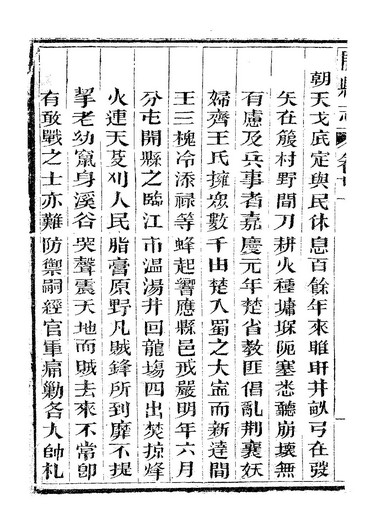 開縣志 卷廿
朝天戈底定與民休息百餘年來雎盱井畝弓在弢
矢在箙村野間刀耕火種墉堞阨塞悉聽崩壞無
有慮及兵事者嘉慶元年楚省教匪倡亂荆襄妖
婦齊王氏擁眾數千由楚入蜀之大寍而新達間
王三槐冷添禄等蜂起響應縣邑戒嚴明年六月
分屯開縣之臨江市溫湯井回龍塲四出焚掠烽
火連天芟刈人民脂膏原野凡賊鋒所到靡不提
挈老幼竄身溪谷哭聲震天地而賊去來不常卽
有敢戰之士亦難防禦嗣經官軍痛勦各大帥札